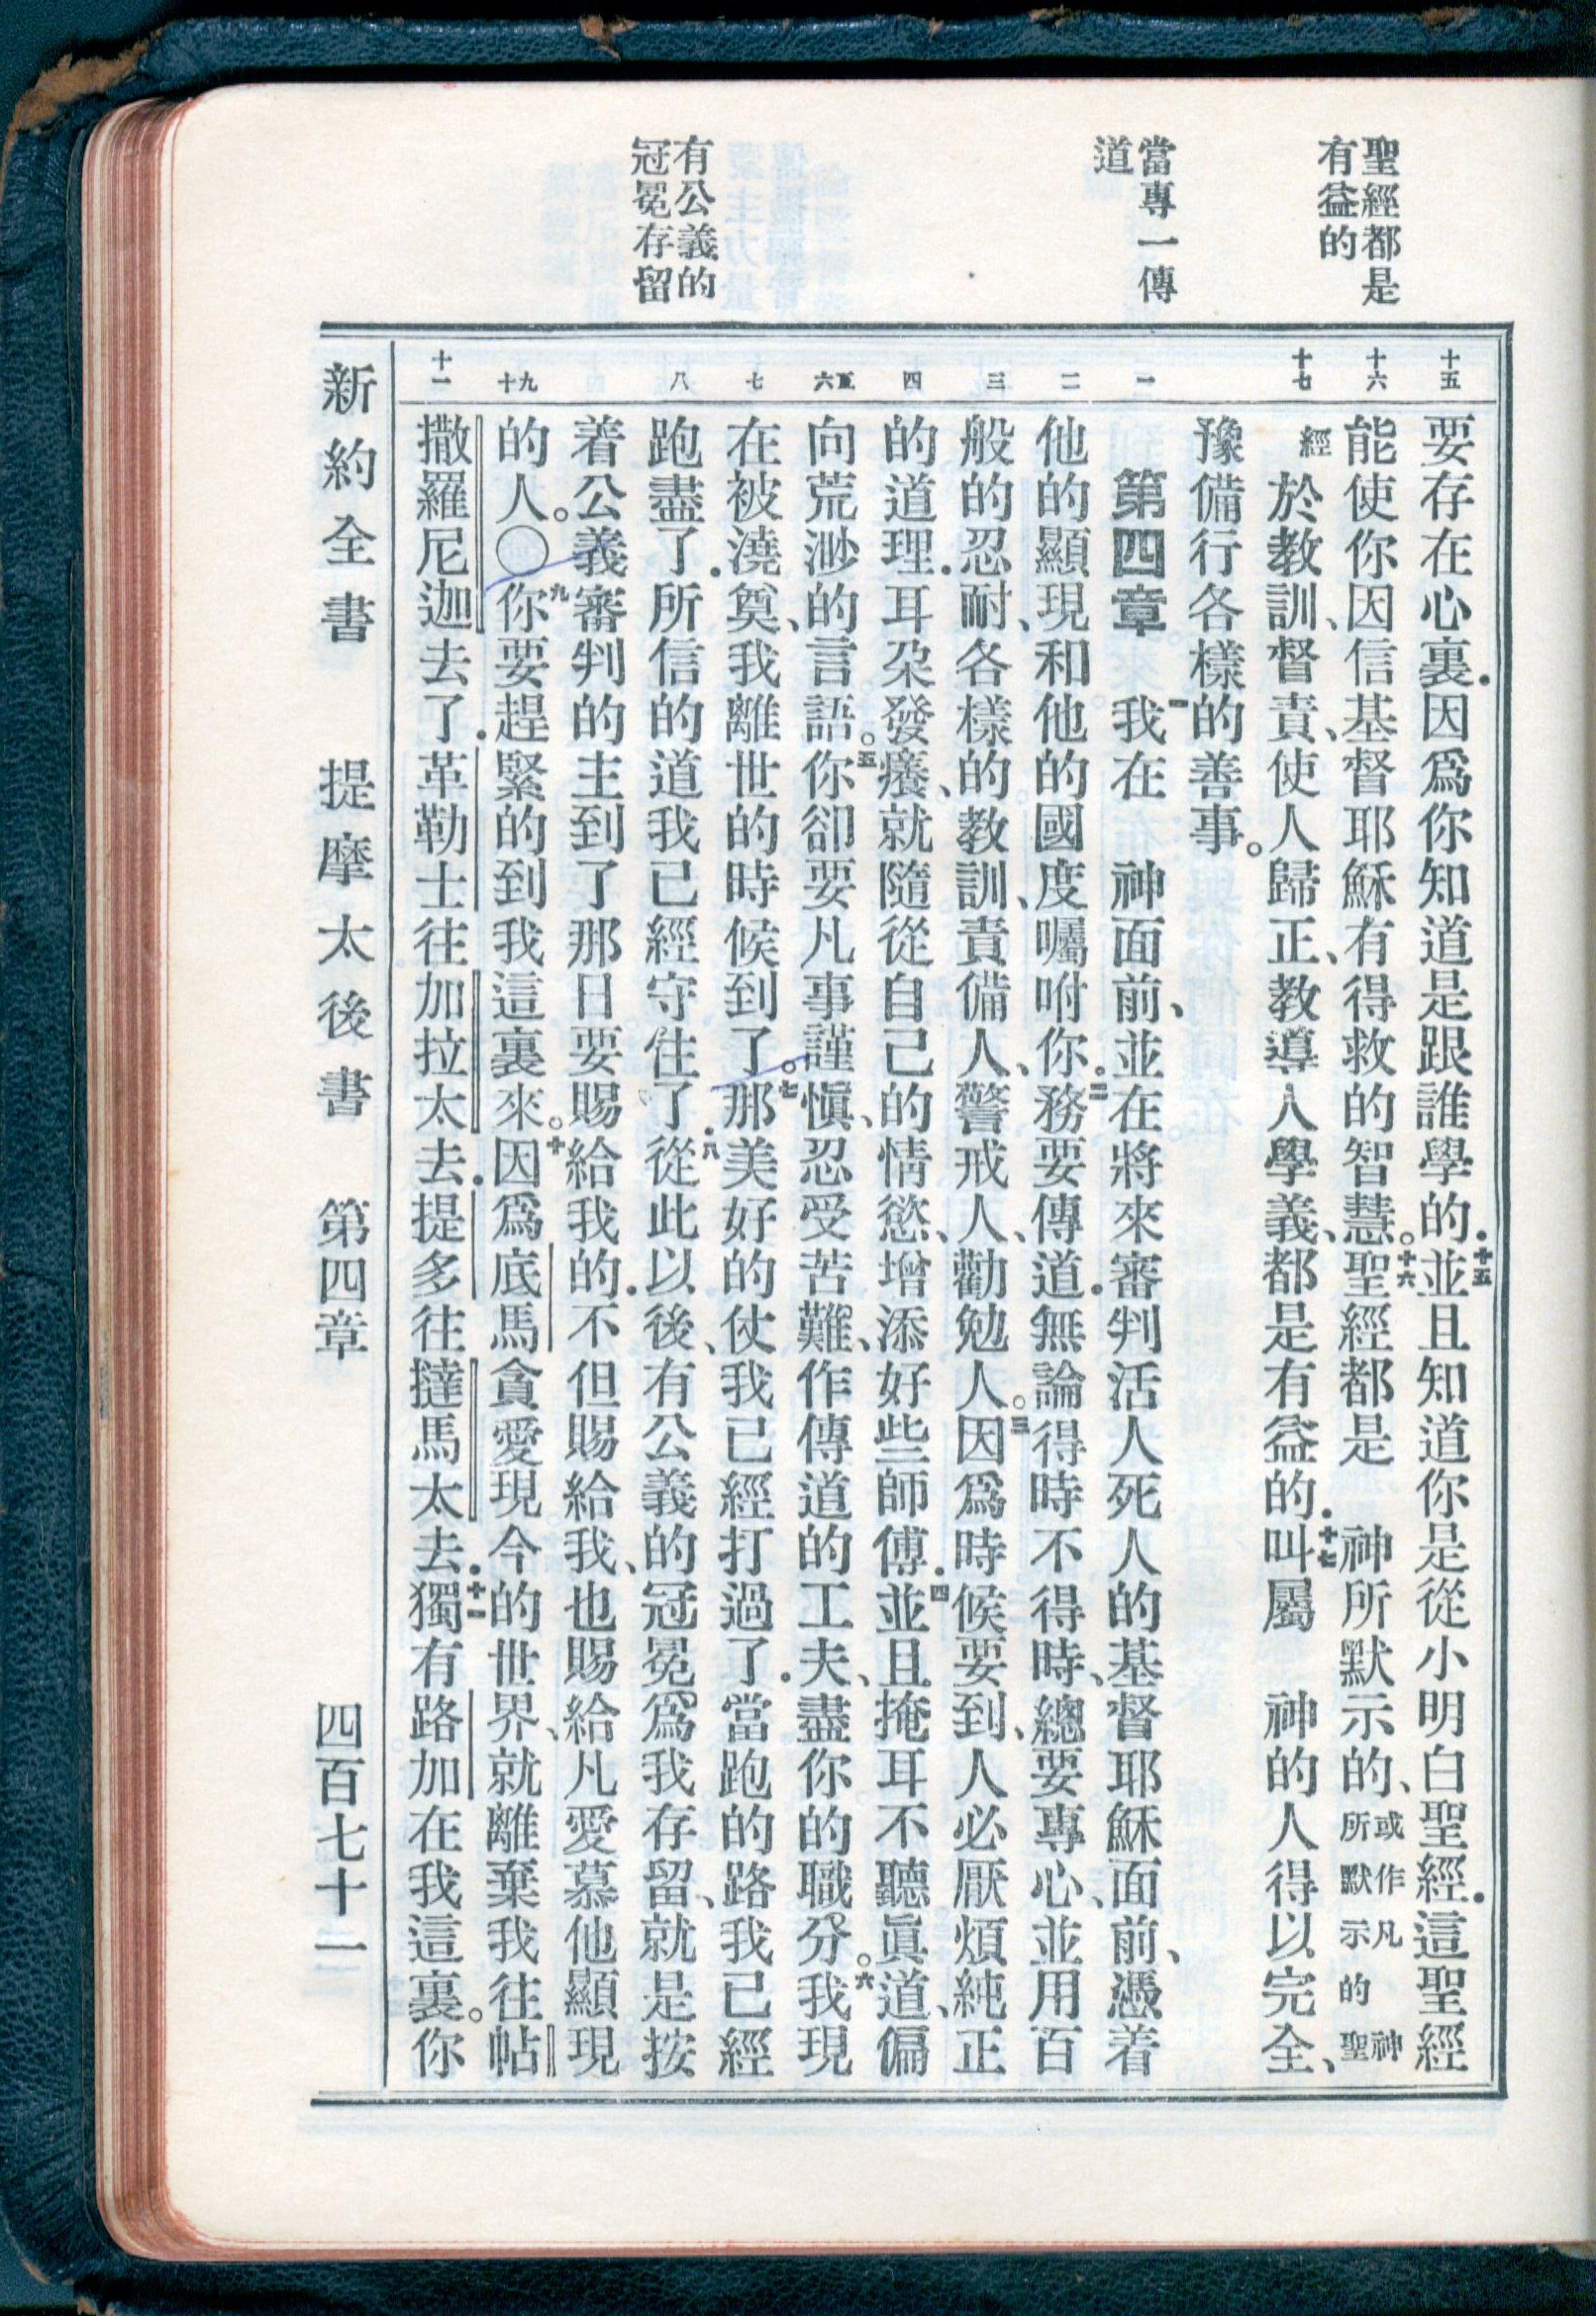 聖經都是
有益的
當專一傳
道
有公義的
冠冕存留
十五
十六
十七
一
二
三
四
五
六
七
八
九
十
十一
要存在心裏．因爲你知道是跟誰學的．十五並且知道你是從小明白聖經．這聖經
能使你因信基督耶穌有得救的智慧。十六聖經都是　神所默示的、或作凡　神所默示的聖
經於教訓、督責、使人歸正、教導人學義、都是有益的．十七叫屬　神的人得以完全、
豫備行各樣的善事。
第四章　一我在　神面前、並在將來審判活人死人的基督耶穌面前、憑着
他的顯現和他的國度囑咐你．二務要傳道．無論得時不得時、總要專心、並用百
般的忍耐、各樣的教訓、責備人、警戒人、勸勉人。三因爲時候要到、人必厭煩純正
的道理．耳朶發癢、就隨從自己的情慾、增添好些師傅．四並且掩耳不聽眞道、偏
向荒渺的言語。五你卻要凡事謹慎、忍受苦難、作傳道的工夫、盡你的職分。六我現
在被澆奠、我離世的時候到了。七那美好的仗我已經打過了．當跑的路我已經
跑盡了．所信的道我已經守住了．八從此以後、有公義的冠冕爲我存留、就是按
着公義審判的主到了那日要賜給我的．不但賜給我、也賜給凡愛慕他顯現
的人。〇九你要趕緊的到我這裏來。十因爲底馬貪愛現今的世界、就離棄我往帖
撒羅尼迦去了．革勒士往加拉太去．提多往撻馬太去．十一獨有路加在我這裏。你
新約全書　提摩太後書　第四章　四百七十一